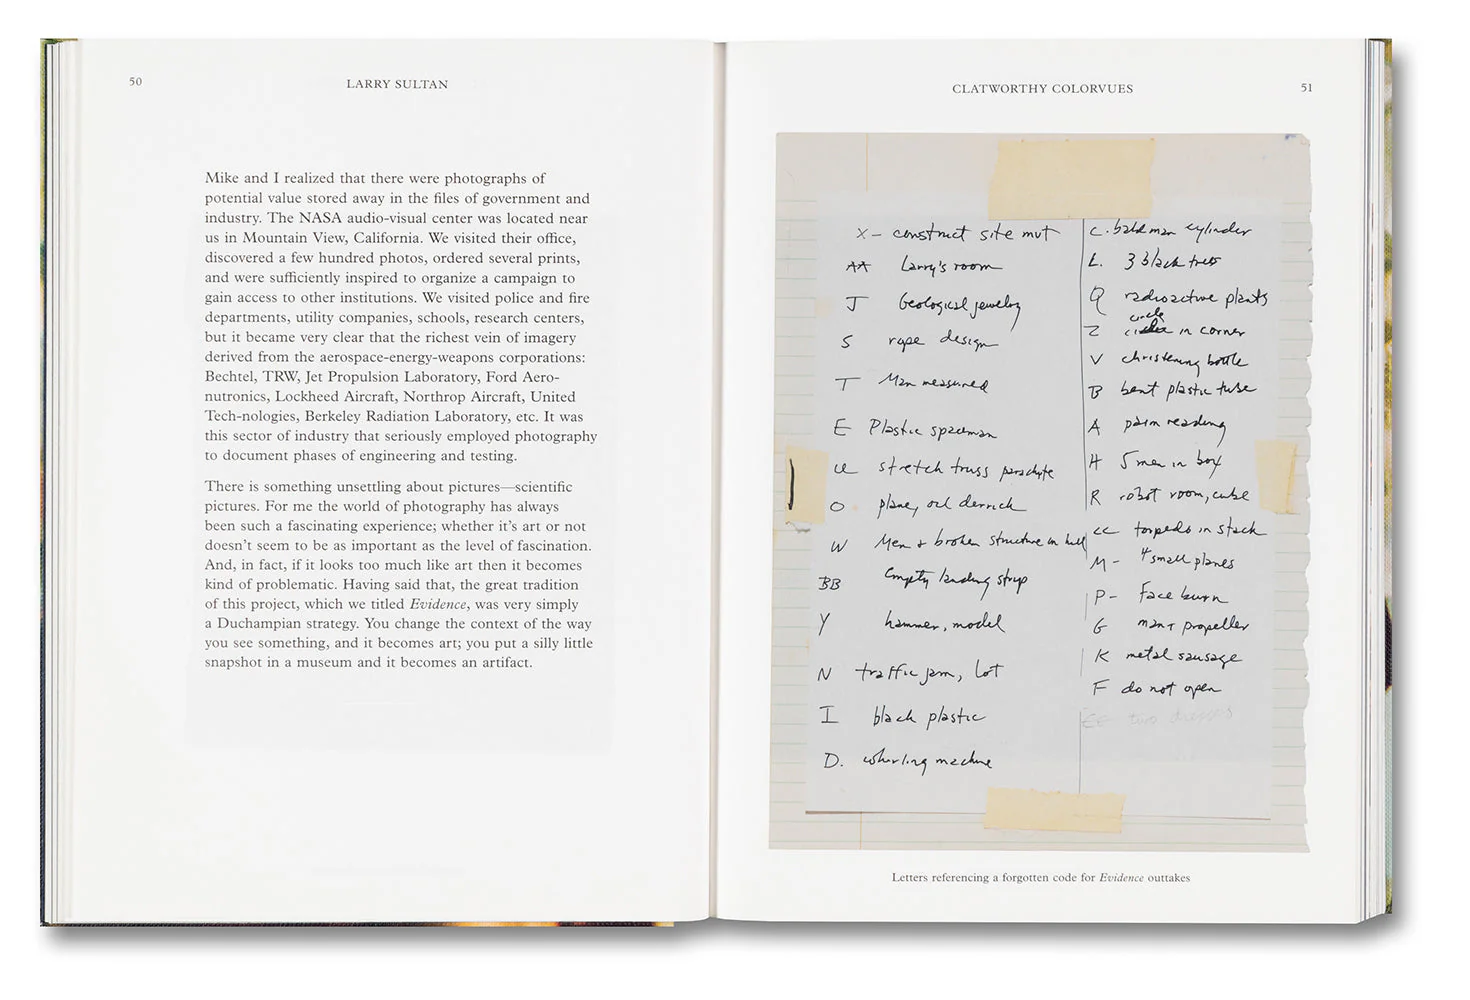 50
LARRY SULTAN
Mike and I realized that there were photographs of
potential value stored away in the files of government and
industry. The NASA audio-visual center was located near
us in Mountain View, California. We visited their office,
discovered a few hundred photos, ordered several prints,
and were sufficiently inspired to organize a campaign to
gain access to other institutions. We visited police and fire
departments, utility companies, schools, research centers,
but it became very clear that the richest vein of imagery
derived from the aerospace-energy-weapons corporations:
Bechtel, TRW, Jet Propulsion Laboratory, Ford Aero-
nutronics, Lockheed Aircraft, Northrop Aircraft, United
Tech-nologies, Berkeley Radiation Laboratory, etc. It was
this sector of industry that seriously employed photography
to document phases of engineering and testing.
There is something unsettling about pictures—scientific
pictures. For me the world of photography has always
been such a fascinating experience; whether it's art or not
doesn't seem to be as important as the level of fascination.
And, in fact, if it looks too much like art then it becomes
kind of problematic. Having said that, the great tradition
of this project, which we titled Evidence, was very simply
a Duchampian strategy. You change the context of the way
you see something, and it becomes art; you put a silly little
snapshot in a museum and it becomes an artifact.
CLATWORTHY COLORVUES
51
X – construct site mut
AA Larry's room
J Geological jewelry
S rope design
T Man measured
E Plastic spaceman
U stretch truss parachute
O plane, oil derrick
W Men + broken structure in hill
BB Empty landing strip
Y hammer, model
N traffic jam, lot
I black plastic
D. whirling machine
C. bald man cylinder
L. 3 black trees
Q radioactive plants
circle
Z in corner
V christening bottle
B bent plastic tube
A palm reading
H 5 men in box
R robot room, cube
CC torpedo in stack
M – 4 small planes
P – Face burn
G man + propeller
K metal sausage
F do not open
EE two dresses
Letters referencing a forgotten code for Evidence outtakes